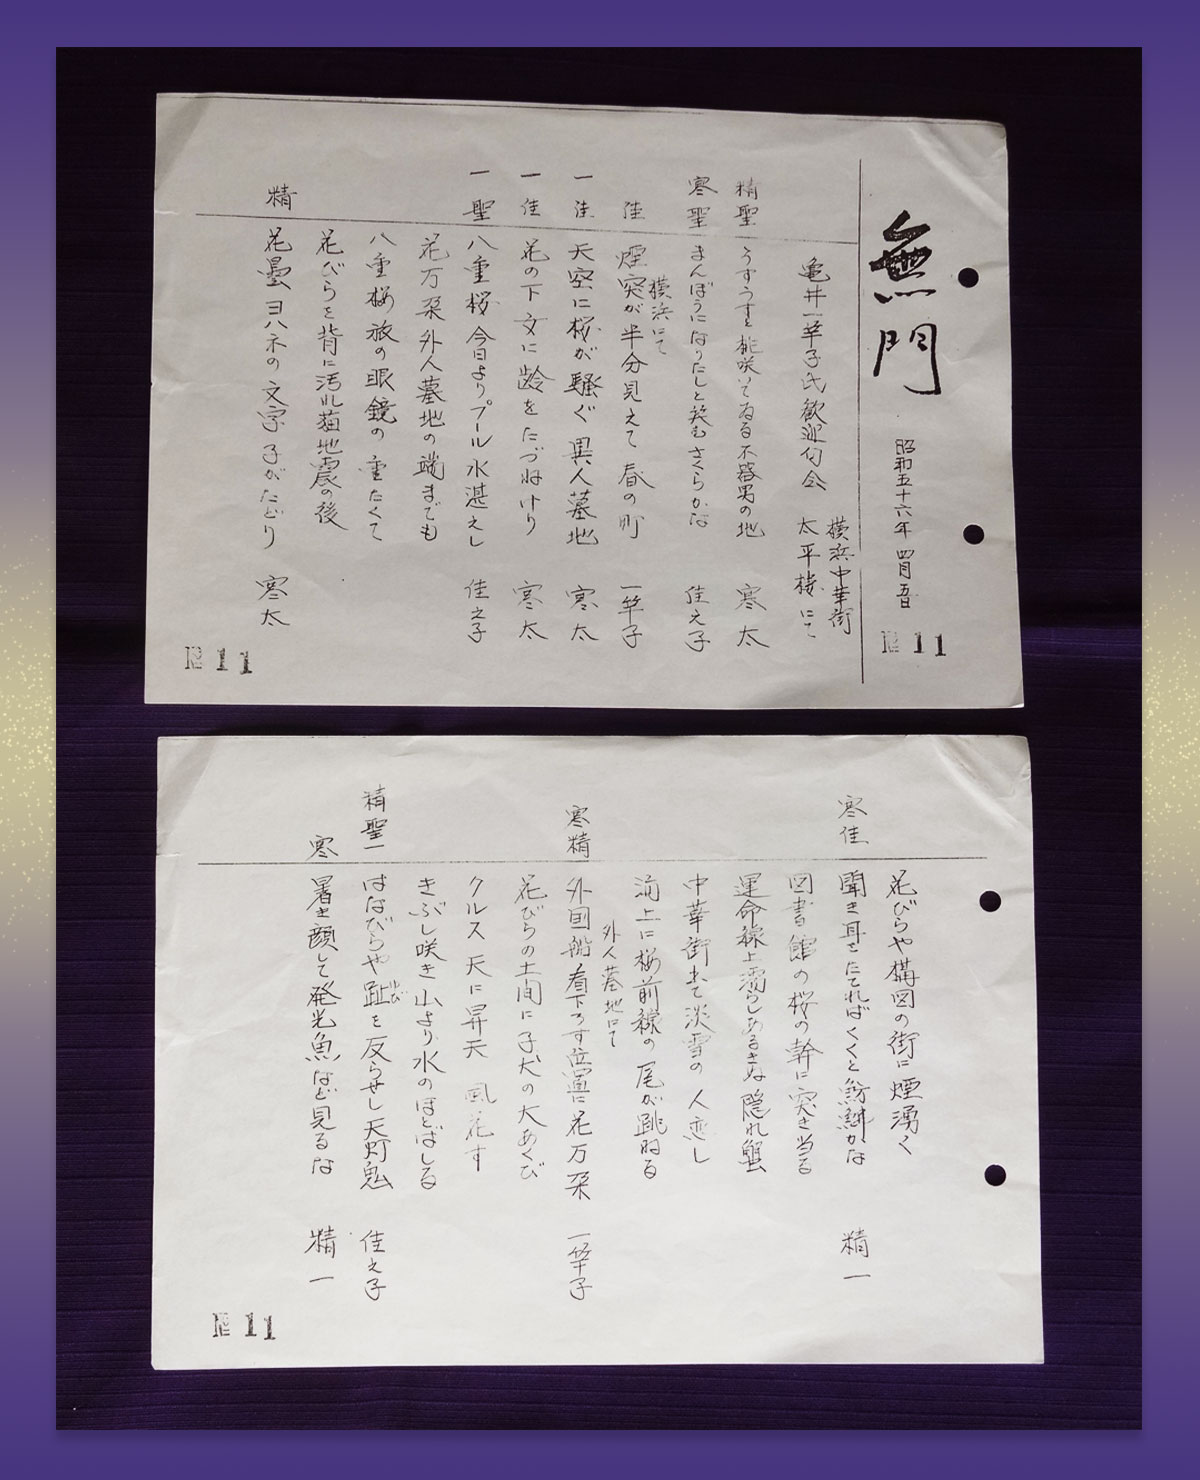 無門
昭和五十六年 四月五日
№ 11
亀井一竿子氏歓迎句会 横浜中華街
太平楼にて
精聖 うすうすと桃咲いてゐる不器男の地 寒太
寒聖 まんぼうになりたしと笑むさくらかな 佳之子
横浜にて
佳 煙突が半分見えて春の町 一竿子
一佳 天空に桜が騒ぐ異人墓地 寒太
一佳 花の下文に齢をたづねけり 寒太
一聖 八重桜今日よりプール水湛えし 佳之子
花万朶外人墓地の端までも
八重桜旅の眼鏡の重たくて
花びらを背に汚れ猫地震の後
精 花曇ヨハネの文字子がたどり 寒太
№ 11
花びらや構図の街に煙湧く
寒佳 聞き耳をたてればくくと魴鮄かな 精一
図書館の桜の幹に突き当る
運命線上濡らしあるきぬ隠れ蟹
中華街出て淡雪の人恋し
海上に桜前線の尾が跳ねる
外人墓地にて
寒精 外国船看下ろす位置に花万朶 一竿子
花びらの土間に子犬の大あくび
クルス天に昇天風花す
きぶし咲き山より水のほとばしる
精聖一 はなびらや趾を反らせし天灯鬼 佳之子
ゆび
寒 暑き顔して発光魚など見るな 精一
№ 11